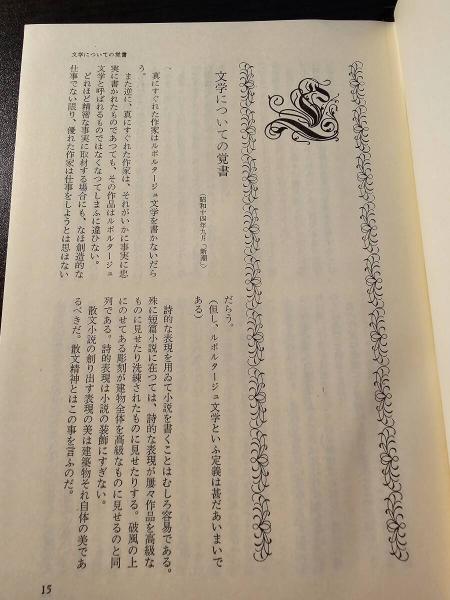 文学についての覚書
文学についての覚書
(昭和十四年九月「新潮」)
一、真にすぐれた作家はルポルタージュ文学を書かないだら
う。
また逆に、真にすぐれた作家は、それがいかに事実に忠
実に書かれたものであつても、その作品はルポルタージュ
文学と呼ばれるものではなくなつてしまふに違ひない。
どれほど精密な事実に取材する場合にも、なほ創造的な
仕事でない限り、優れた作家は仕事をしようとは思はない
だらう。
(但し、ルポルタージュ文学といふ定義は甚だあいまいで
ある)
詩的な表現を用ゐて小説を書くことはむしろ容易である。
殊に短篇小説に在つては、詩的な表現が屢々作品を高級な
ものに見せたり洗練されたものに見せたりする。破風の上
にのせてある彫刻が建物全体を高級なものに見せるのと同
列である。詩的表現は小説の装飾にすぎない。
散文小説の創り出す表現の美は建築物それ自体の美であ
るべきだ。散文精神とはこの事を言ふのだ。
15